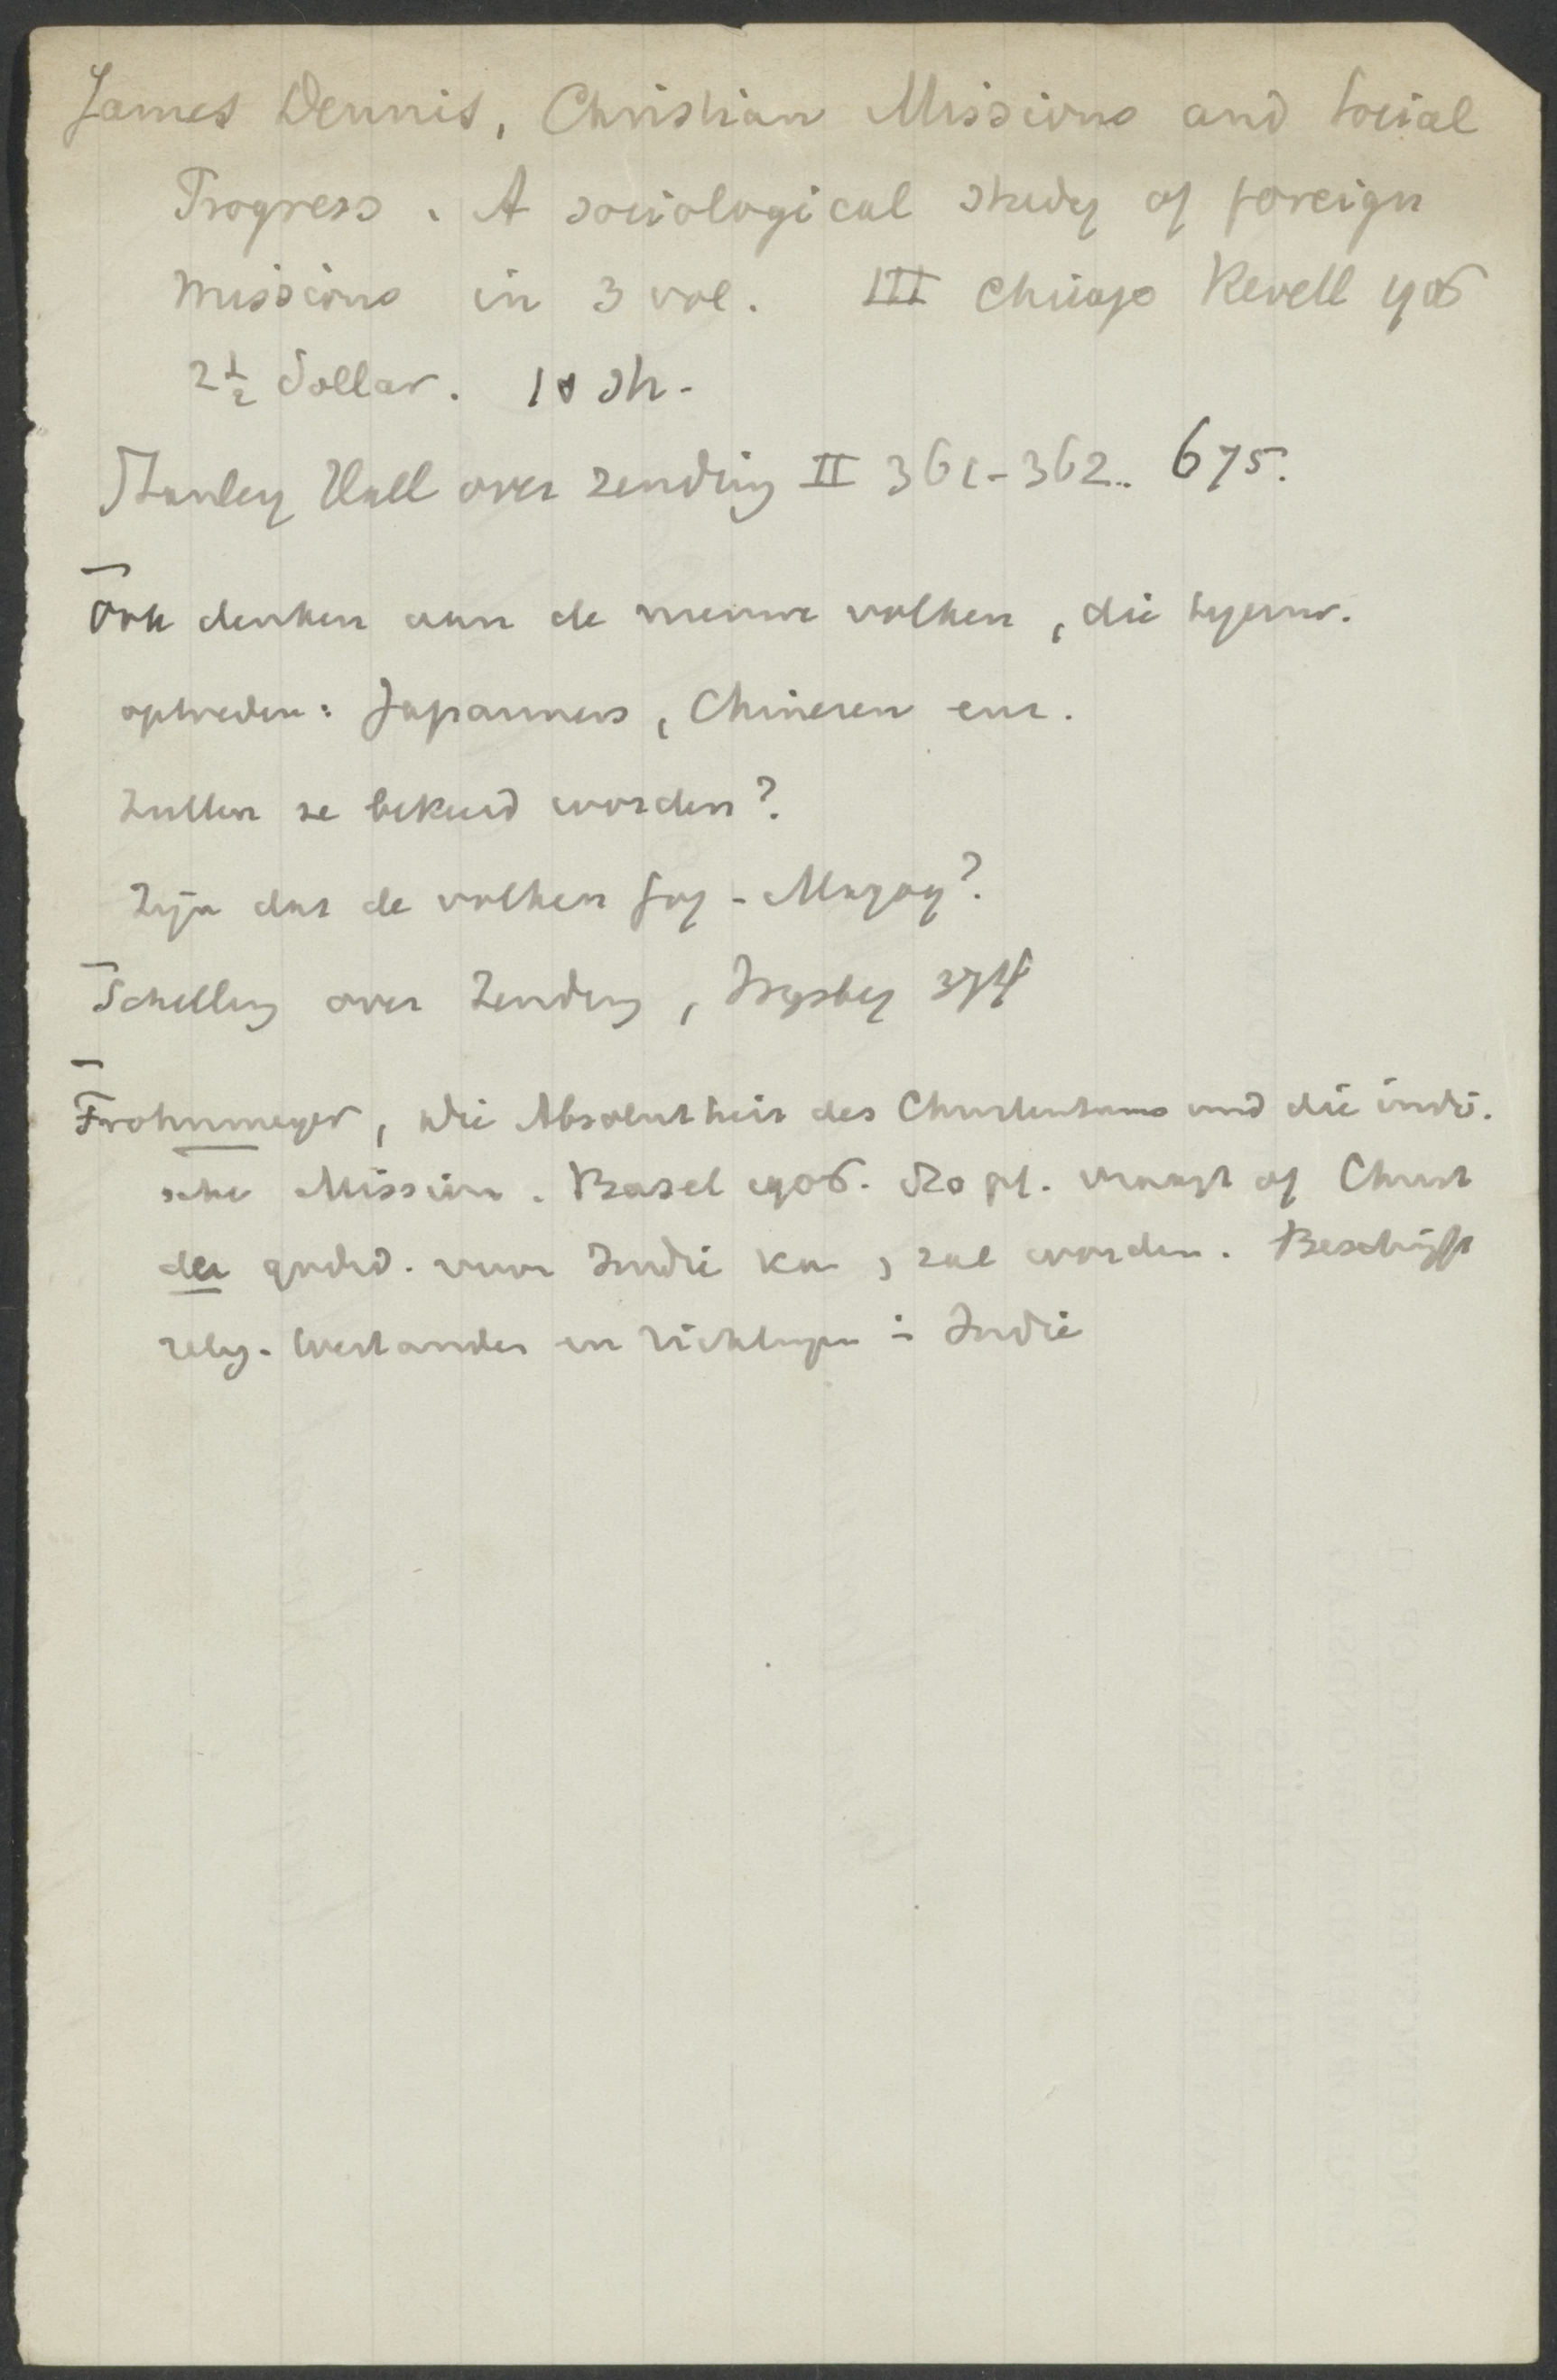 James Dennis, Christian Missions and Social
Progress. A sociological study of foreign
missions in 3 vol. III Chicago Revell 906
2½ Dollar. 10 sh.
Stanley Hall over zending II 361-362.. 675.
Ook denken aan de nieuwe volken, die tegenw.
optreden: Japanners, Chineezen enz.
Zullen ze bekeerd worden?
Zijn dat de volken Gog-Magog?
Schelling over Zending,
Frohnmeyer, Die Absolutheit des Christentums und die indi-
sche Mission. Basel 1906. 80 pf. vraagt of Christ
der godsd. voor Indie kan, zal worden. Beschrijft
relig. toestanden en richtingen in Indie